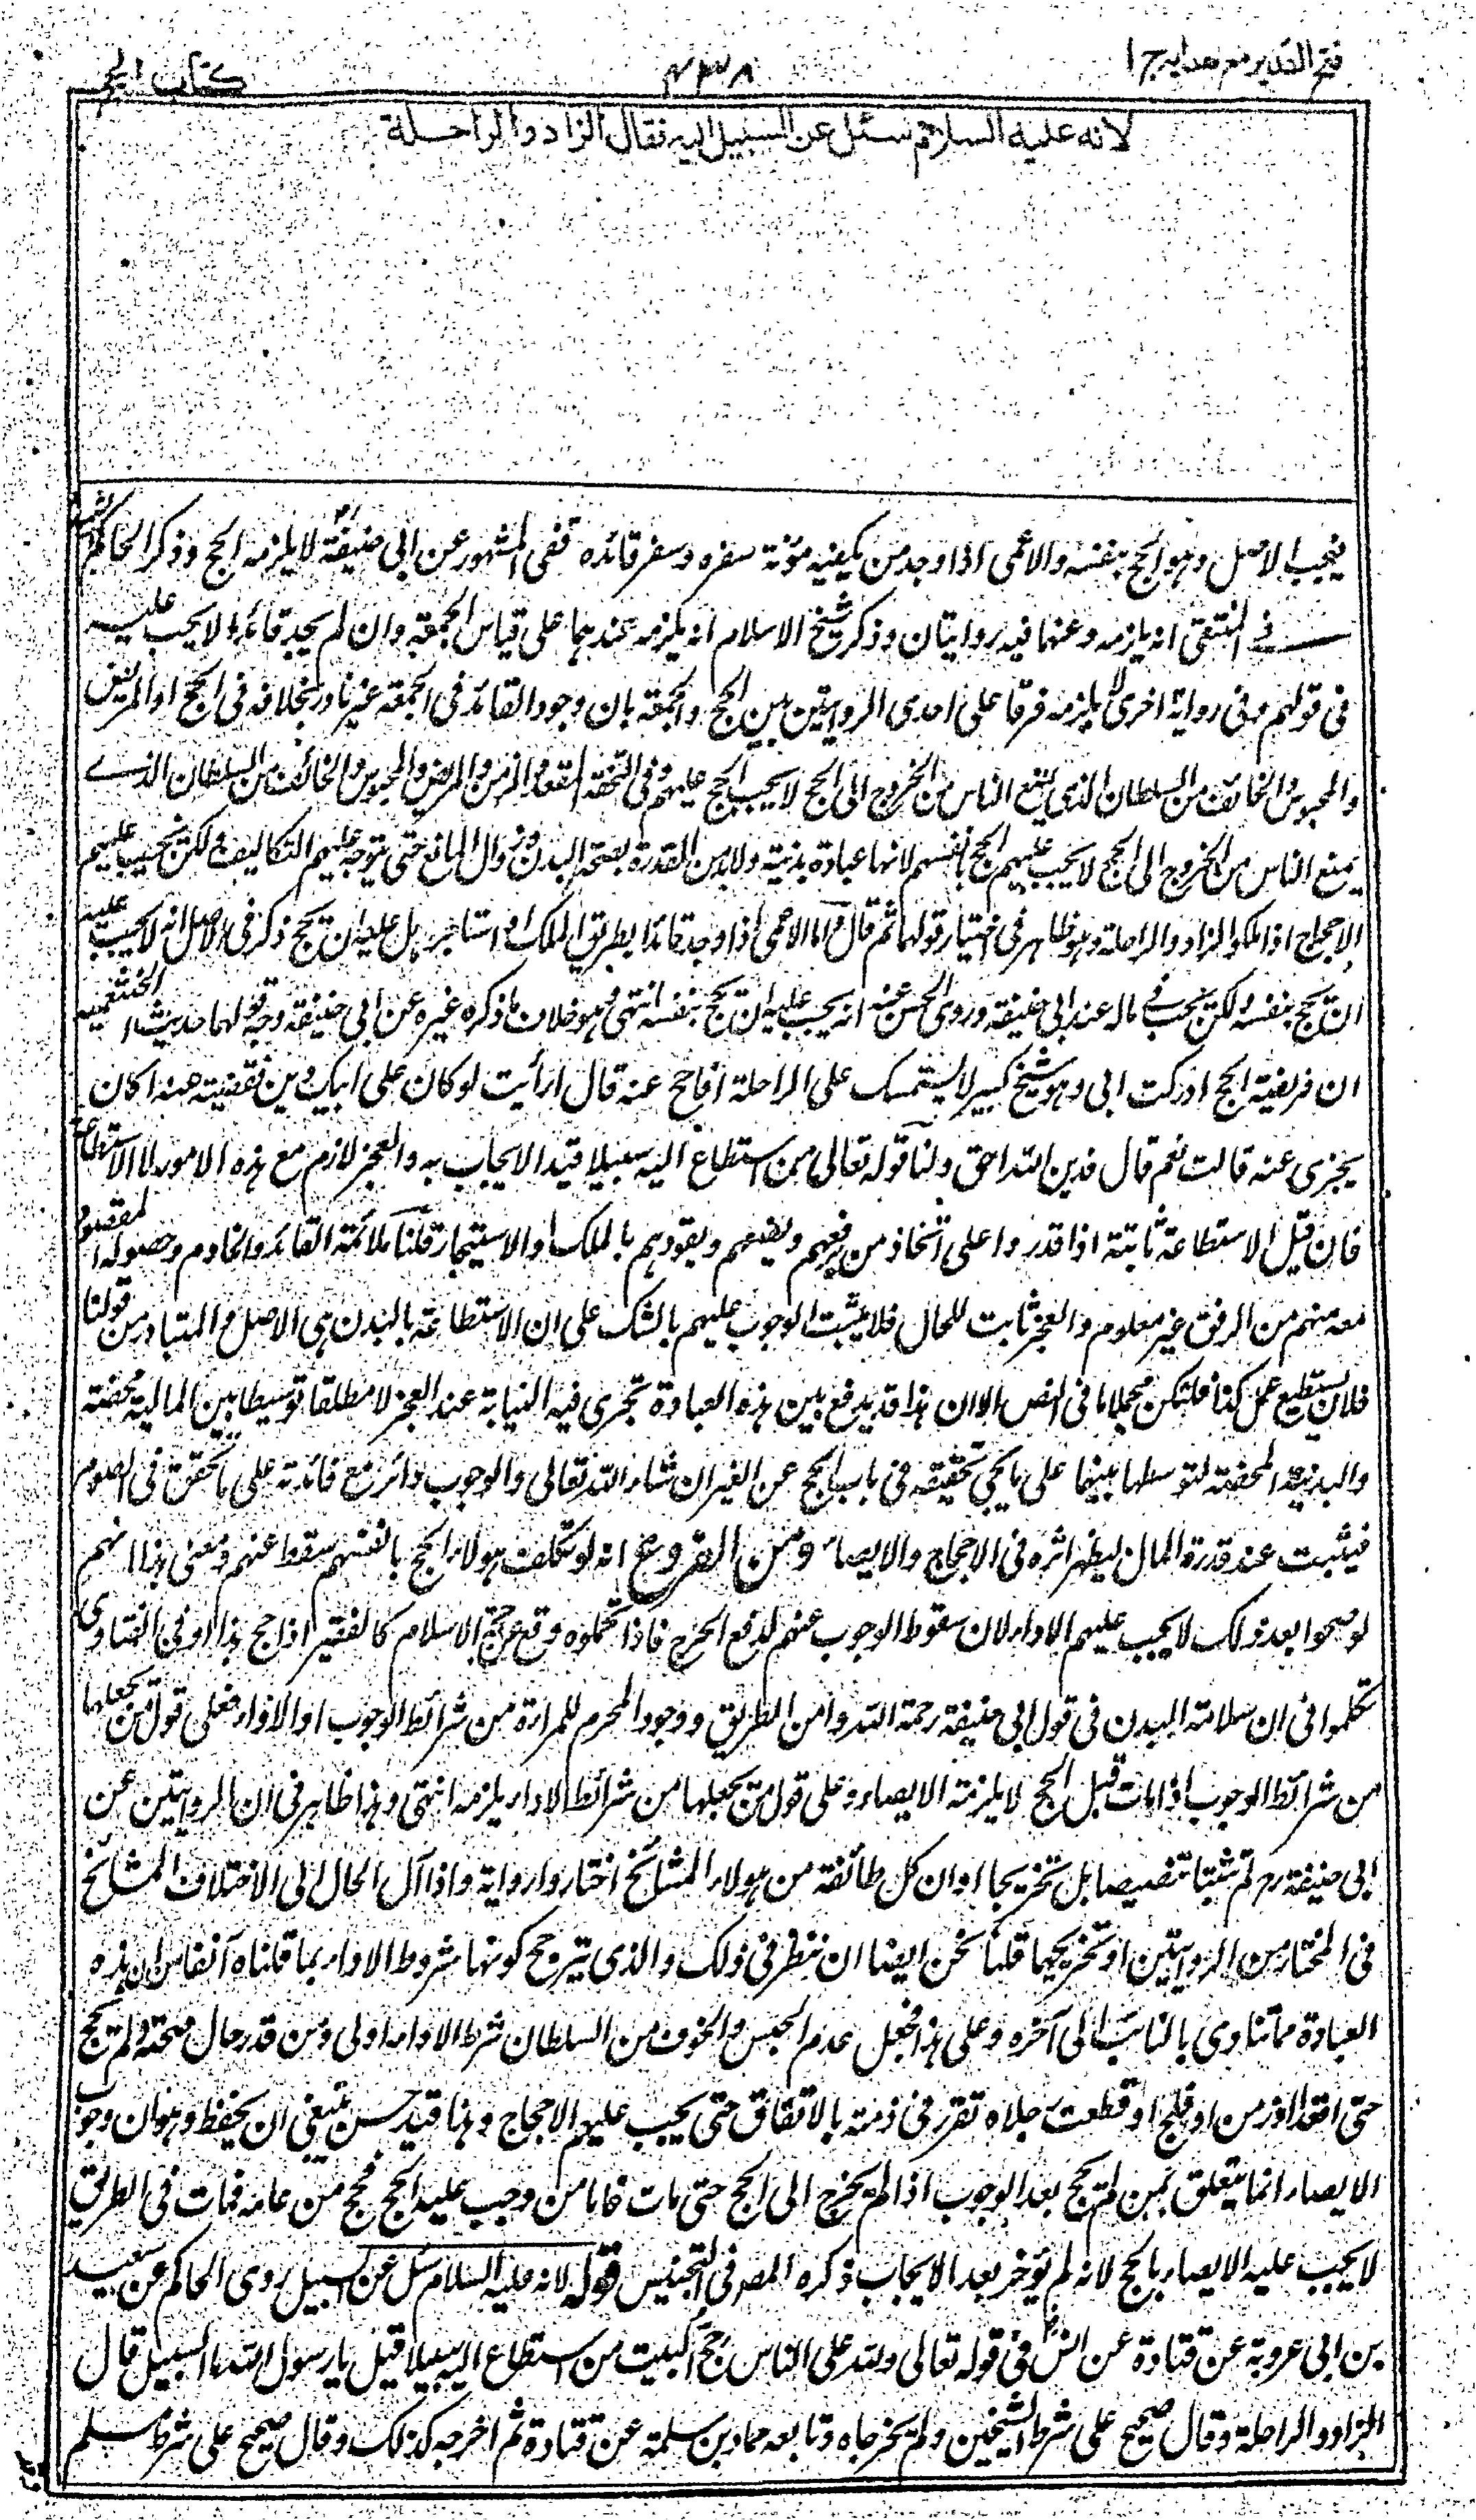 فتح القدير مع هدايه ج ١
٤٣٨
كتاب الحج
لانه عليه السلام سئل عن السبيل اليه فقال الزاد والراحلة
فيجب الاصل وهو الحج بنفسه والاعمى اذا وجد من يكفيه مؤنة سفره وسفر قائده ففى المشهور عن ابى حنيفة رح لا يلزمه الحج وذكر الحاكم الشهيد
فى المنتقى انه يلزمه وعنهما فيه روايتان وذكر شيخ الاسلام انه يلزمه عندهما على قياس الجمعة وان لم يجد قائدا لا يجب عليه
فى قولهم وفى رواية اخرى لا يلزمه فرقا على احدى الروايتين بين الحج والجمعة بان وجود القائد فى الجمعة غير نادر بخلافه فى الحج او المريض
والمحبوس والخائف من السلطان الذى يمنع الناس من الخروج الى الحج لا يجب الحج عليهم وفى التحفة المقعد والزمن والمريض والمحبوس والخائف من السلطان الذى
يمنع الناس من الخروج الى الحج لا يجب عليهم الحج بانفسهم لانها عبادة بدنية ولا بد من القدرة بصحة البدن وزوال المانع حتى يتوجه عليهم التكاليف ولكن يجب عليهم
الاحجاج اذا ملكوا الزاد والراحلة وهو ظاهر فى اختيار قولهما ثم قال واما الاعمى اذا وجد قائدا بطريق الملك او استاجر هل عليه ان يحج ذكر فى الاصل انه لا يجب عليه
ان يحج بنفسه ولكن يجب فى ماله عند ابى حنيفة وروى الحسن عنه انه يجب عليه ان يحج بنفسه انتهى وهو خلاف ما ذكره غيره عن ابى حنيفة وجه قولهما حديث الخثعمية
ان فريضة الحج ادركت ابى وهو شيخ كبير لا يستمسك على الراحلة افاحج عنه قال ارأيت لو كان على ابيك دين فقضيته عنه اكان
يجزى عنه قالت نعم قال فدين الله احق ولنا قوله تعالى من استطاع اليه سبيلا قيد الايجاب به والعجز لازم مع هذه الامور لا الاستطاعة
فان قيل الاستطاعة ثابتة اذا قدروا على اتخاذ من يرفعهم ويضعهم ويقودهم بالملك او الاستيجار قلنا ملائمة القائد والخادم وحصول المقصود
معه منهم من الرفق غير معلوم والعجز ثابت للحال فلا يثبت الوجوب عليهم بالشك على ان الاستطاعة بالبدن هى الاصل والمتبادر من قولنا
فلان يستطيع عمل كذا فلتكن محملا ما فى النص الا ان هذا قد يدفع بين هذه العبادة تجرى فيه النيابة عند العجز لا مطلقا توسيطا بين المالية المحضة
والبدنية المحضة لتوسطها بينهما على ما يجى تحقيقه فى باب الحج عن الغير ان شاء الله تعالى والوجوب دائر مع فائدته على ما تحقق فى الصوم
فيثبت عند قدرة المال ليظهر اثره فى الاحجاج والايصاء ومن الفروع انه لو تكلف هؤلاء الحج بانفسهم سقط عنهم ومعنى هذا انهم
لو صحوا بعد ذلك لا يجب عليهم الاداء لان سقوط الوجوب عنهم لدفع الحرج فاذا تحملوه وقع عن حجة الاسلام كالفقير اذا حج هذا وفى الفتاوى
تكلموا فى ان سلامة البدن فى قول ابى حنيفة رحمة الله وامن الطريق ووجود المحرم للمرأة من شرائط الوجوب او الاداء فعلى قول من يجعلها
من شرائط الوجوب اذا مات قبل الحج لا يلزمه الايصاء وعلى قول من يجعلها من شرائط الاداء يلزمه انتهى وهذا ظاهر فى ان الروايتين عن
ابى حنيفة رح لم تثبتا تنصيصا بل تخريجا او ان كل طائفة من هؤلاء المشائخ اختاروا رواية واذا آل الحال الى الاختلاف المشائخ
فى المختار من الروايتين او تخريجهما قلنا نحن ايضا ان ننظر فى ذلك والذى يترجح كونها شروط الاداء بما قلناه آنفا من ان هذه
العبادة مما تتادى بالنائب الى آخره وعلى هذا فجعل عدم الحبس والخوف من السلطان شرط الاداء اولى ومن قدر حال صحته ولم يحج
حتى اقعد او زمن او فلج او قطعت رجلاه تقرر فى ذمته بالاتفاق حتى يجب عليه الاحجاج وهنا قيد حسن ينبغى ان يحفظ وهو ان وجوب
الايصاء انما يتعلق بمن لم يحج بعد الوجوب اذا لم يخرج الى الحج حتى مات فاما من وجب عليه الحج فحج من عامه فمات فى الطريق
لا يجب عليه الايصاء بالحج لانه لم يؤخر بعد الايجاب ذكره المصر فى التجنيس قوله لانه عليه السلام سئل عن السبيل روى الحاكم عن سعيد
بن ابى عروبة عن قتادة عن انس رض فى قوله تعالى ولله على الناس حج البيت من استطاع اليه سبيلا قيل يا رسول الله ما السبيل قال
الزاد والراحلة وقال صحيح على شرط الشيخين ولم يخرجاه وتابعه حماد بن سلمة عن قتادة ثم اخرجه كذلك وقال صحيح على شرط مسلم